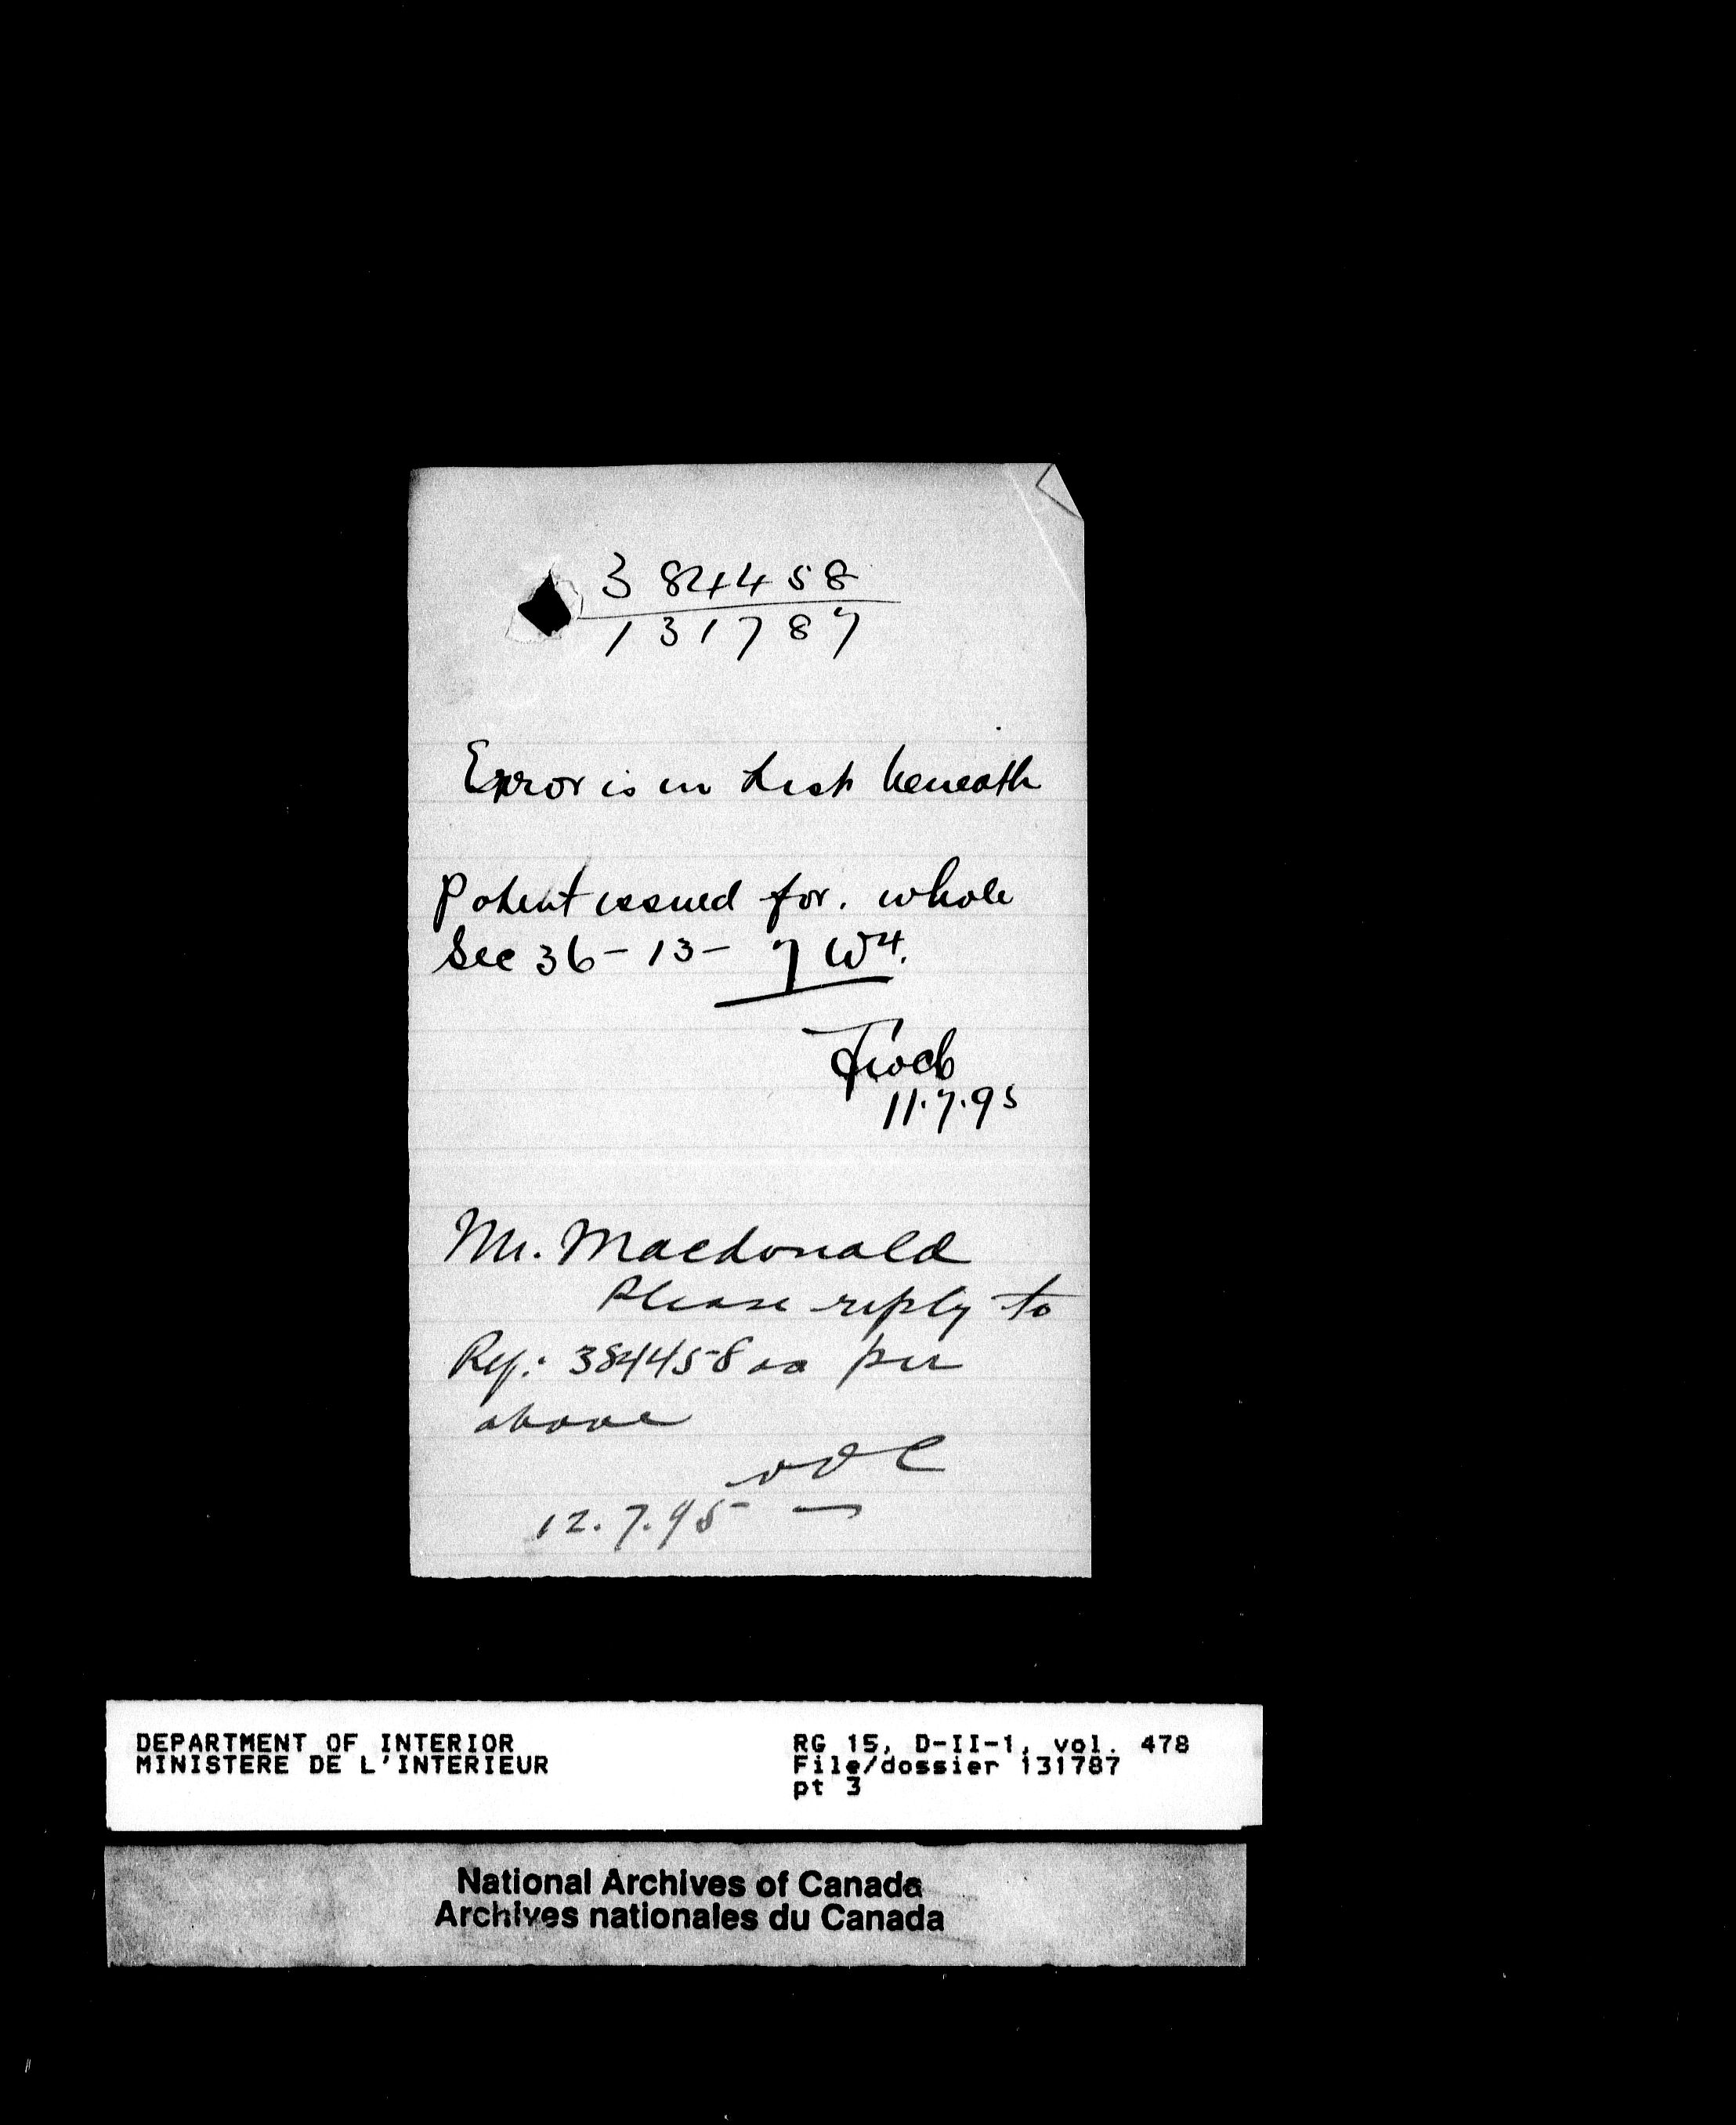 384458
131787
Error is in List beneath
Patent issued for. whole
Sec 36 - 13 - 7 W4.
11.7.95
Mr. Macdonald
Please reply to
Ref: 384458 as per
above
12.7.95
DEPARTMENT OF INTERIOR
MINISTERE DE L'INTERIEUR
RG 15, D-II-1, vol. 478
File/dossier 131787
pt 3
National Archives of Canada
Archives nationales du Canada